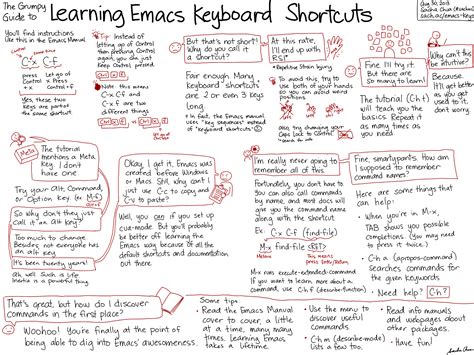 The Grumpy
Guide to
Learning Emacs Keyboard Shortcuts
Aug 30, 2013
Sacha Chua
You'll find instructions
like this in the Emacs Manual
C-x C-f
press Control + x
Let go of Control
Press Control + f
Yes, these two
keys are part
of the same
shortcut
Tip: Instead of
letting go of Control
then pressing Control
again, you can just
keep Control pressed.
Note: this means
C-x C-f
and
C-x f are two
different things
But that's not short!
Why do you call it
a shortcut?
At this rate,
I'll end up with
RSI*
* Repetitive Strain Injury
Fair enough. Many
keyboard "shortcuts"
are 2 or even 3 keys
long.
* In fact, the Emacs manual
uses "key sequences" instead
of "keyboard shortcuts."
To avoid this, try to
use both of your hands
so you can avoid weird
positions
Also, try changing your
Caps lock to Control
Fine. I'll try it.
But there are
so many to learn!
The tutorial
(C-h t)
will teach you the
basics. Repeat it
as many times as
you need.
Why can't this
be intuitive?
Because
it'll get better
as you get
used to it.
Don't worry.
Meta
The tutorial
mentions a Meta
key. I don't
have one.
Try your Alt, Command,
or Option key (ex: M-f)
So why don't they just
call it an alt key?
Too much to change.
Besides, not everyone has
an alt key.
It's been twenty years!
Ah well. Such is life.
Inertia is a powerful thing.
Okay, I get it, Emacs was
created before Windows
or Macs. Still, why can't I
just use C-c to copy and
C-v to paste?
Well, you can if you set up
cua-mode. But you'll probably
be better off learning the
Emacs way because of all the
default shortcuts and documentation
out there.
I'm really never going to
remember all of this.
Fortunately, you don't have to.
You can also call commands
by name, and most docs will
give you the command name
along with the shortcut.
Ex: C-x C-f (find-file)
M-x find-file <RET>
Meta-x
This means
press Enter/Return
M-x runs execute-extended-command.
If you want to learn more about a
command, use C-h f (describe-function)
Fine, smartypants. How am I
supposed to remember
command names?
Here are some things that
can help:
• When you're in M-x,
TAB shows you possible
completions. (You may need
to press it twice.)
• C-h a (apropos-command)
searches command names
for the given keywords
• Need help? C-h ?
That's great, but how do I discover
commands in the first place?
Woohoo! You're finally at the point of
being able to dig into Emacs' awesomeness.
Some tips
• Read the Emacs Manual
cover to cover, a little
at a time, many many
times. Learning Emacs
takes a lifetime.
• Use the menu to
discover useful
commands.
• C-h m (describe-mode)
lists a few too.
• Read info manuals
and webpages about
other packages.
• Have fun!
Sacha Chua